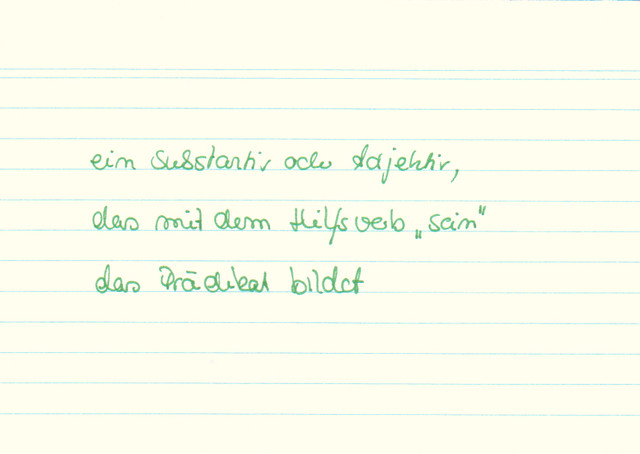 ein Substantiv oder Adjektiv,
das mit dem Hilfsverb „sein"
das Prädikat bildet